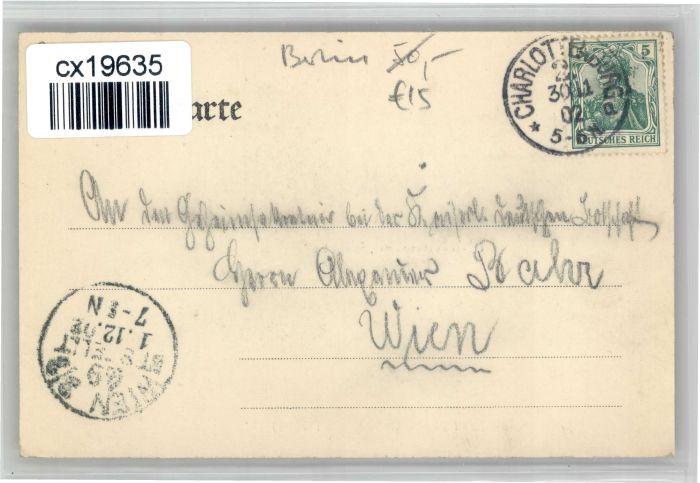 cx19635
arte
Berlin 50,-
€15
CHARLOTTENBURG
2
30 11
02
5-6N
a
5
DEUTSCHES REICH
An den Geheimsekretair bei der Kaiserl. Deutschen Botschaft
Herrn Alexander
Wien
WIEN 3/3
49
1.12.02
7-8N